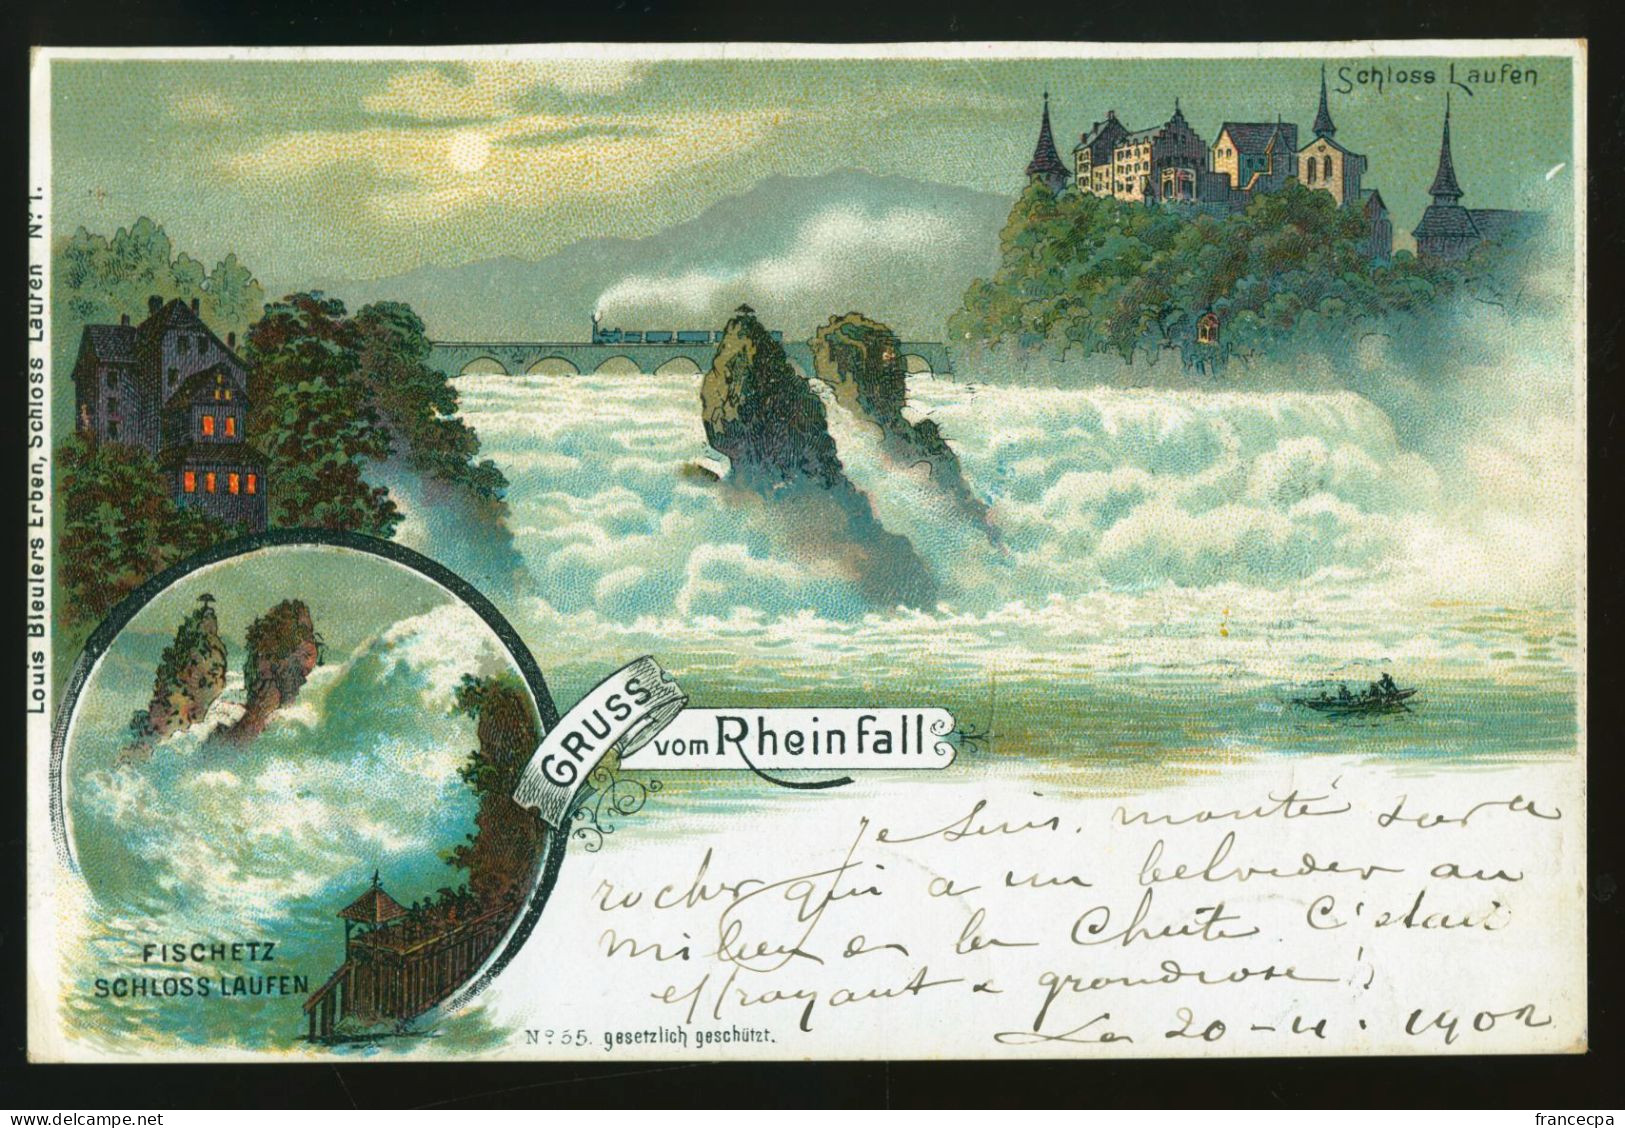 Schloss Laufen
Louis Bleulers Erben, Schloss Laufen Nº 1.
GRUSS
vom Rheinfall
FISCHETZ
SCHLOSS LAUFEN
Nº 55. gesetzlich geschützt.
Je suis monté sur
rocher qui a un belveder au
milieu de la chute. C'était
effrayant & grandiose!
Le 20 - 4 . 1902
francecpa